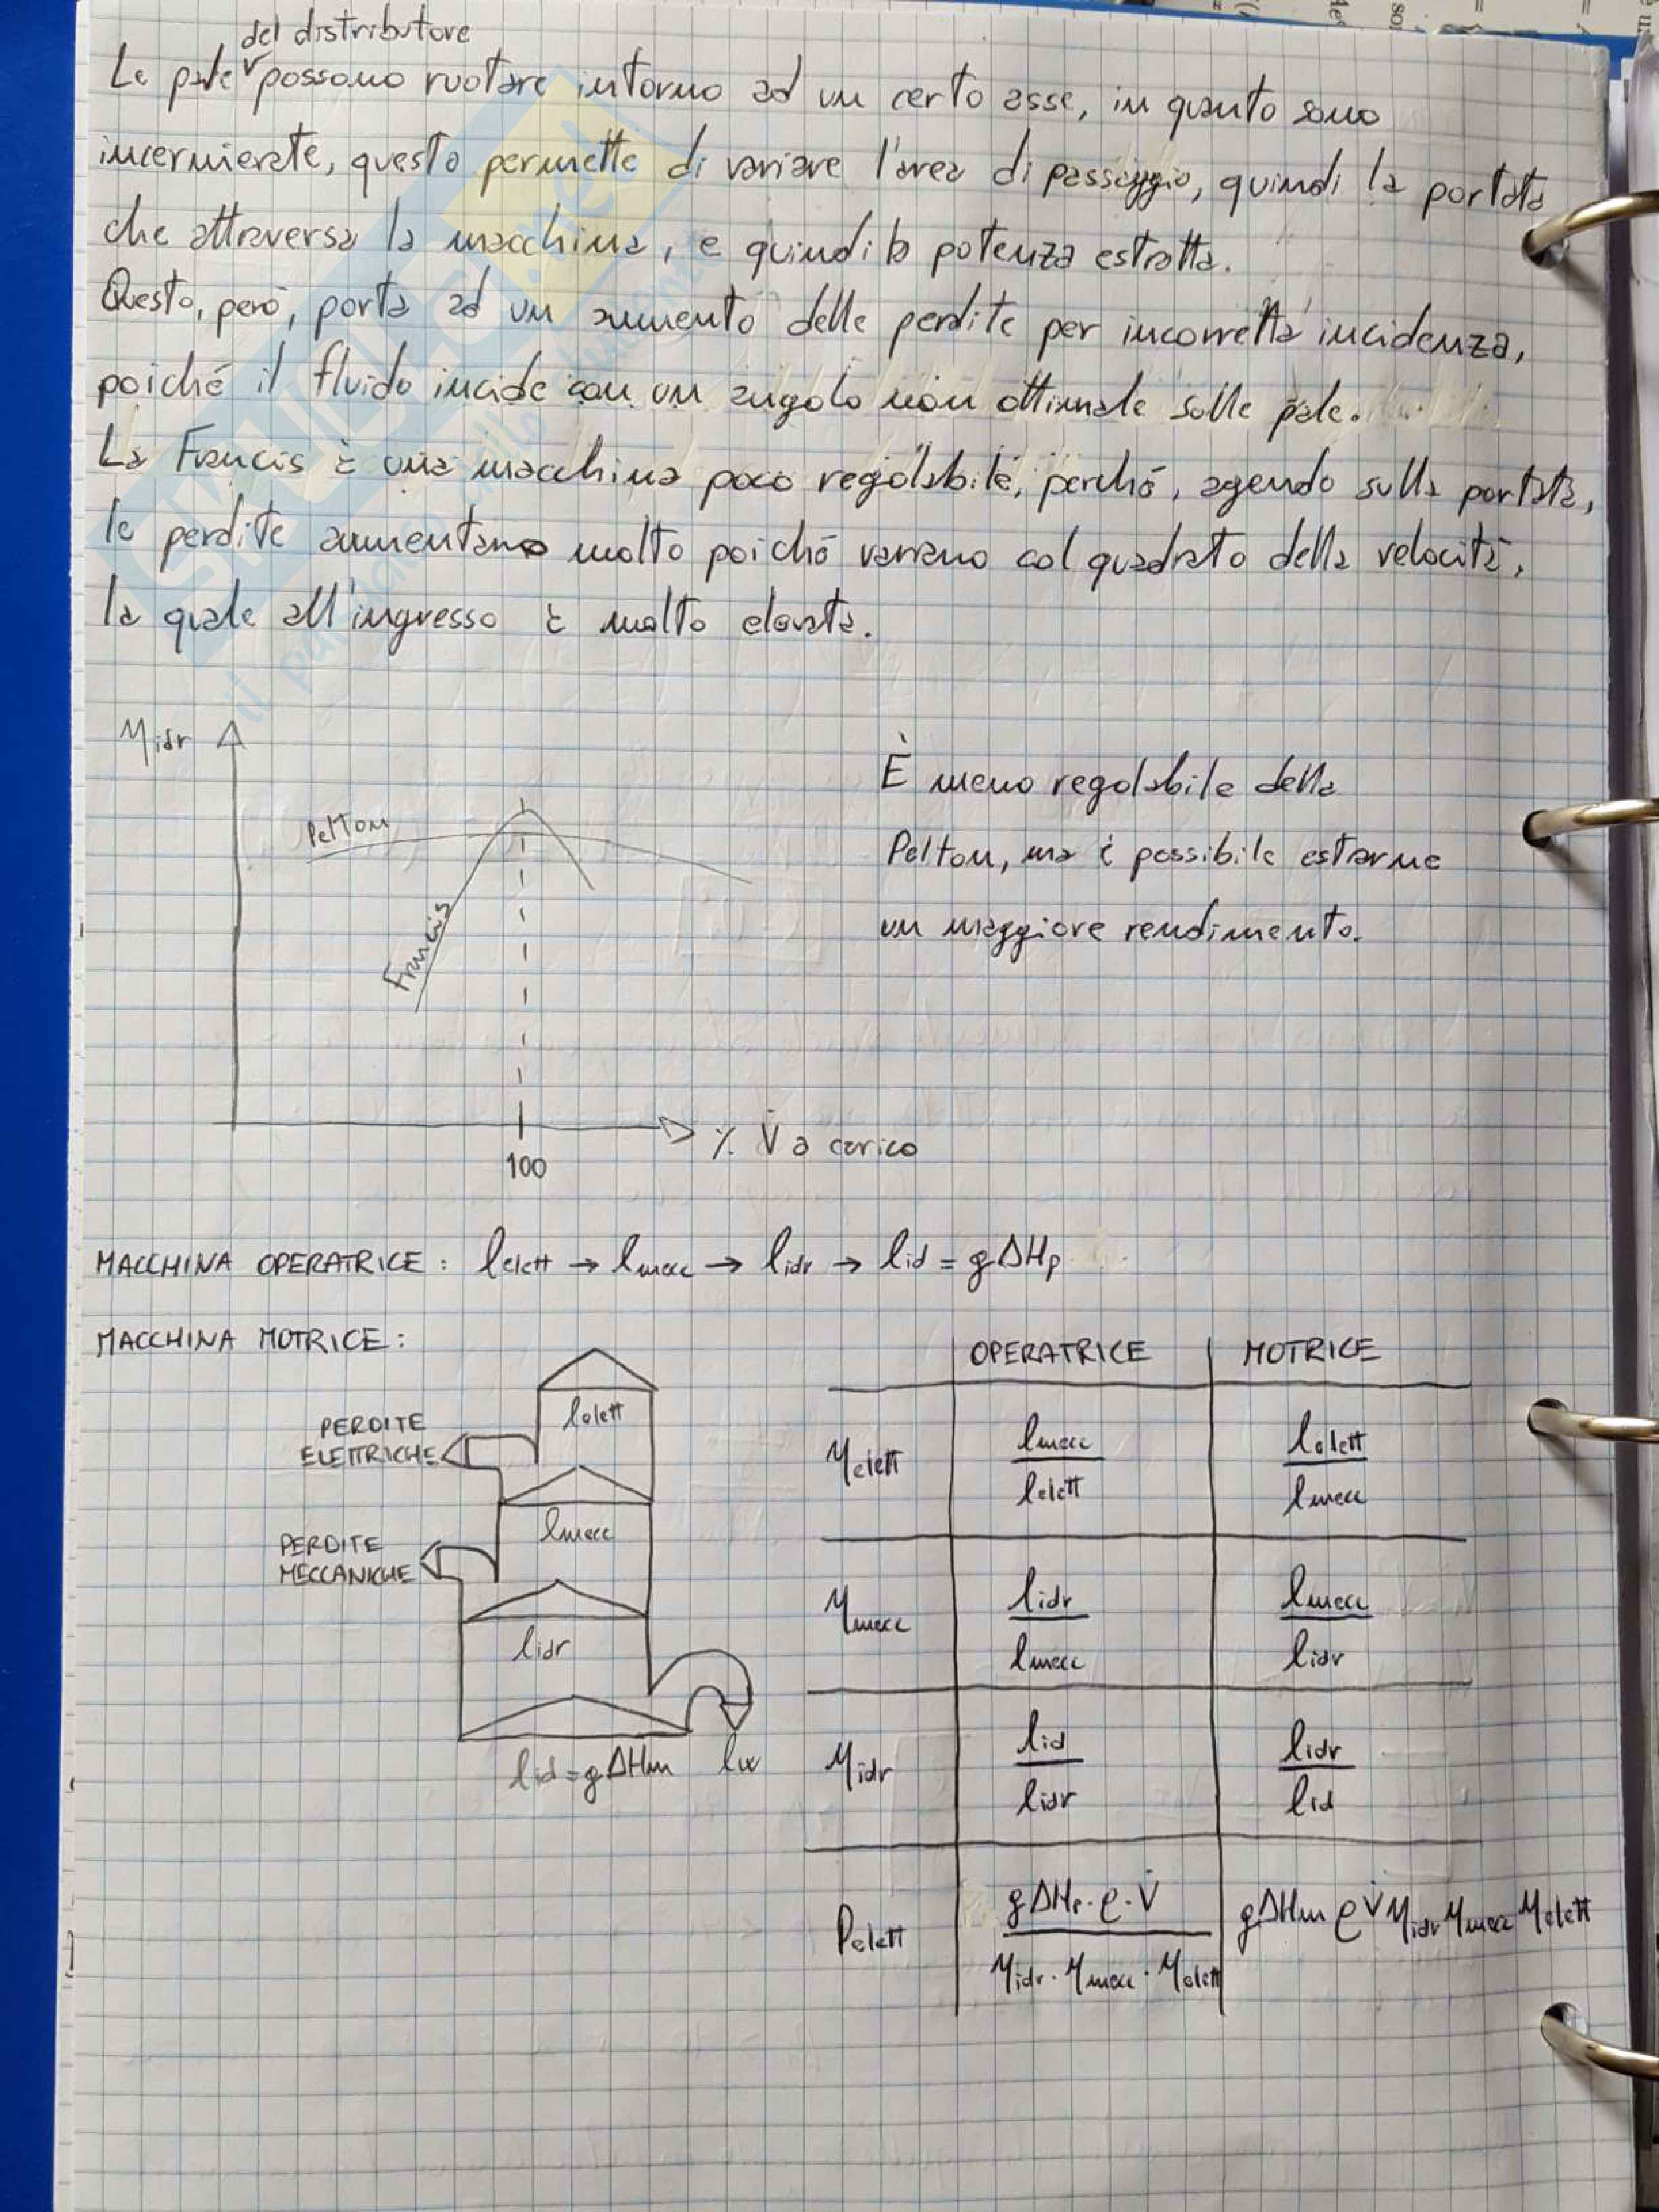 del distributore
Le pale possono ruotare intorno ad un certo asse, in quanto sono
incernierate, questo permette di variare l'area di passaggio, quindi la portata
che attraversa la macchina, e quindi la potenza estratta.
Questo, però, porta ad un aumento delle perdite per incorretta incidenza,
poiché il fluido incide con un angolo non ottimale sulle pale.
La Francis è una macchina poco regolabile, perché, agendo sulla portata,
le perdite aumentano molto poiché variano col quadrato della velocità,
la quale all'ingresso è molto elevata.
SKUOLA.net
il paradiso dello studente
ηidr
Pelton
Francis
100
% V̇ a carico
È meno regolabile della
Pelton, ma è possibile estrarne
un maggiore rendimento.
MACCHINA OPERATRICE: lelett → lmecc → lidr → lid = gΔHp
MACCHINA MOTRICE:
lelett
PERDITE
ELETTRICHE
lmecc
PERDITE
MECCANICHE
lidr
lid = gΔHm lw
OPERATRICE MOTRICE
ηelett lmecc/lelett lelett/lmecc
ηmecc lidr/lmecc lmecc/lidr
ηidr lid/lidr lidr/lid
Pelett gΔHp·ρ·V̇/ηidr·ηmecc·ηelett gΔHm ρV̇ ηidr ηmecc ηelett